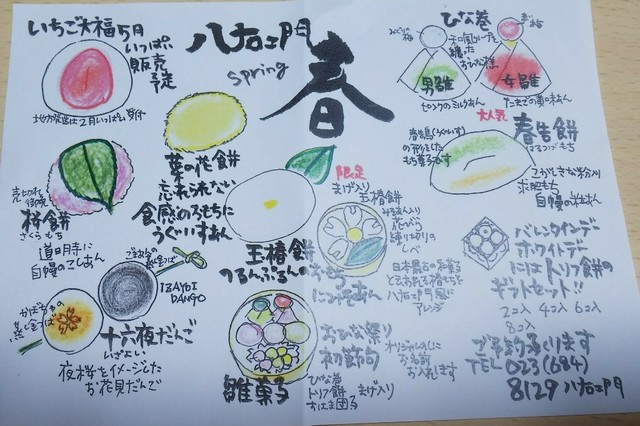 いちご大福5月
いっぱい
販売
予定
地方発送は2月いっぱい受付
八右エ門
spring
春
ひな巻
男雛
女雛
ピンクのミルクあん
大人気
春告餅
はるつげもち
春告鳥(うぐいす)
の形をした
もち菓子です
求肥もち
菜の花餅
忘れられない
食感のもちに
うぐいすあん
売切れ
御免
桜餅
さくらもち
道明寺に
自慢のこしあん
限定
まげ入り
玉椿餅
花びら
練り切りの
しべ
玉椿餅
つるんぷるんの
おもち
日本最古の和菓子
といわれる椿もちを
八右エ門風に
アレンジ
IZAYOI
DANGO
かぼちゃの
十六夜だんご
いざよい
夜桜をイメージした
お花見だんご
雛菓子
おひな祭り
初節句
オリジナルに
お名前
お入れします
ひな巻
トリフ餅
まげ入り
バレンタインデー
ホワイトデー
にはトリフ餅の
ギフトセット!!
2コ入 4コ入 6コ入
8コ入
ご予約承ります
TEL 023(684)
8129 八右エ門